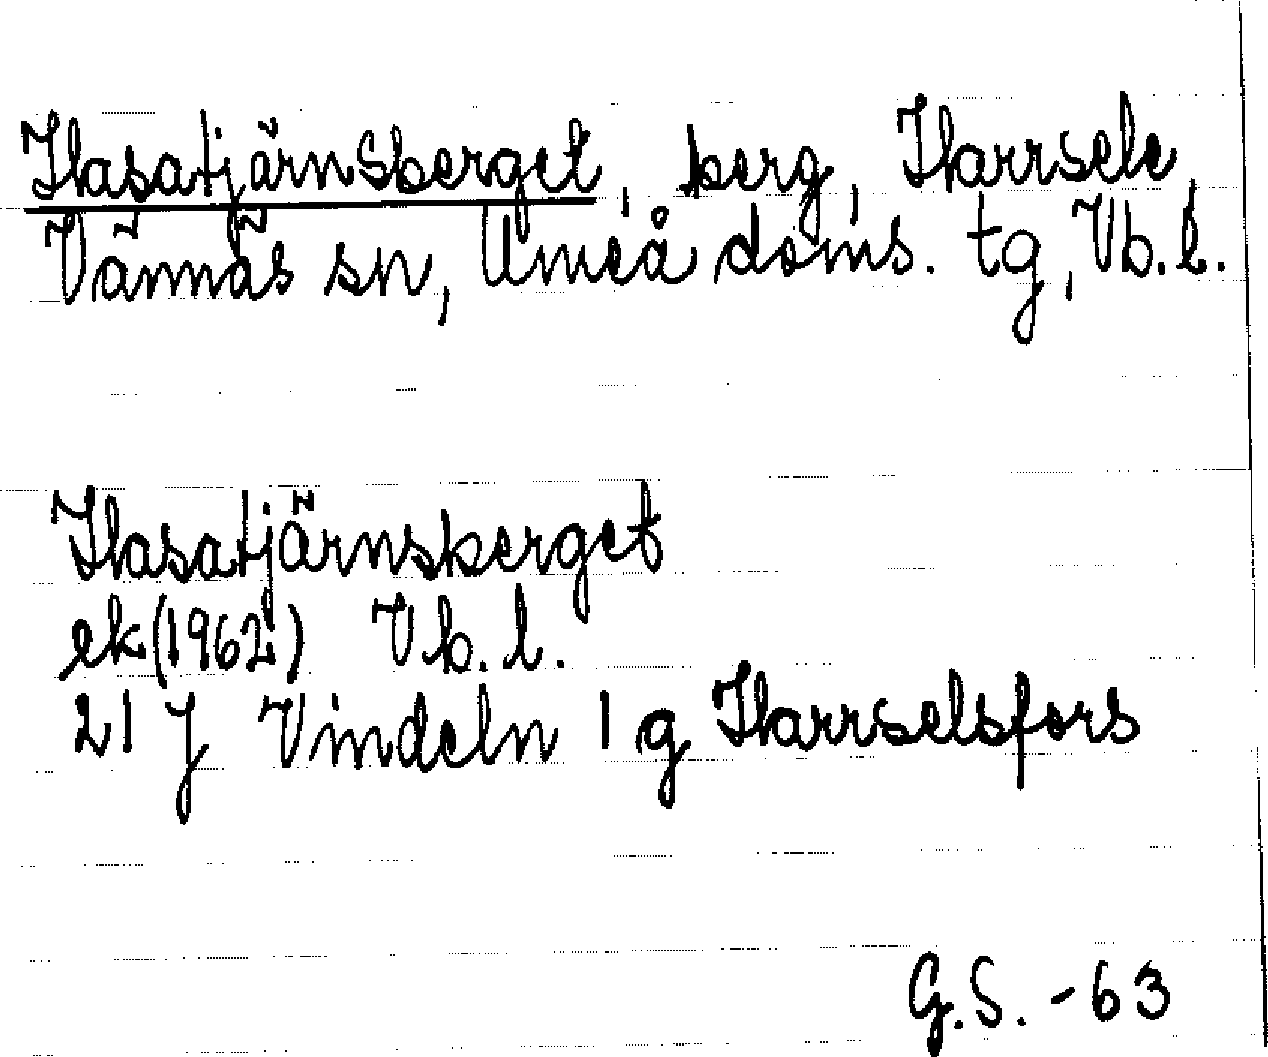 Hasatjärnsberget, berg, Harrsele,
Vännäs sn, Umeå doms. tg, Vb. l.
Hasatjärnsberget
ek (1962) Vb. l.
21 J Vindeln 1 g Harrselsfors
G.S. -63